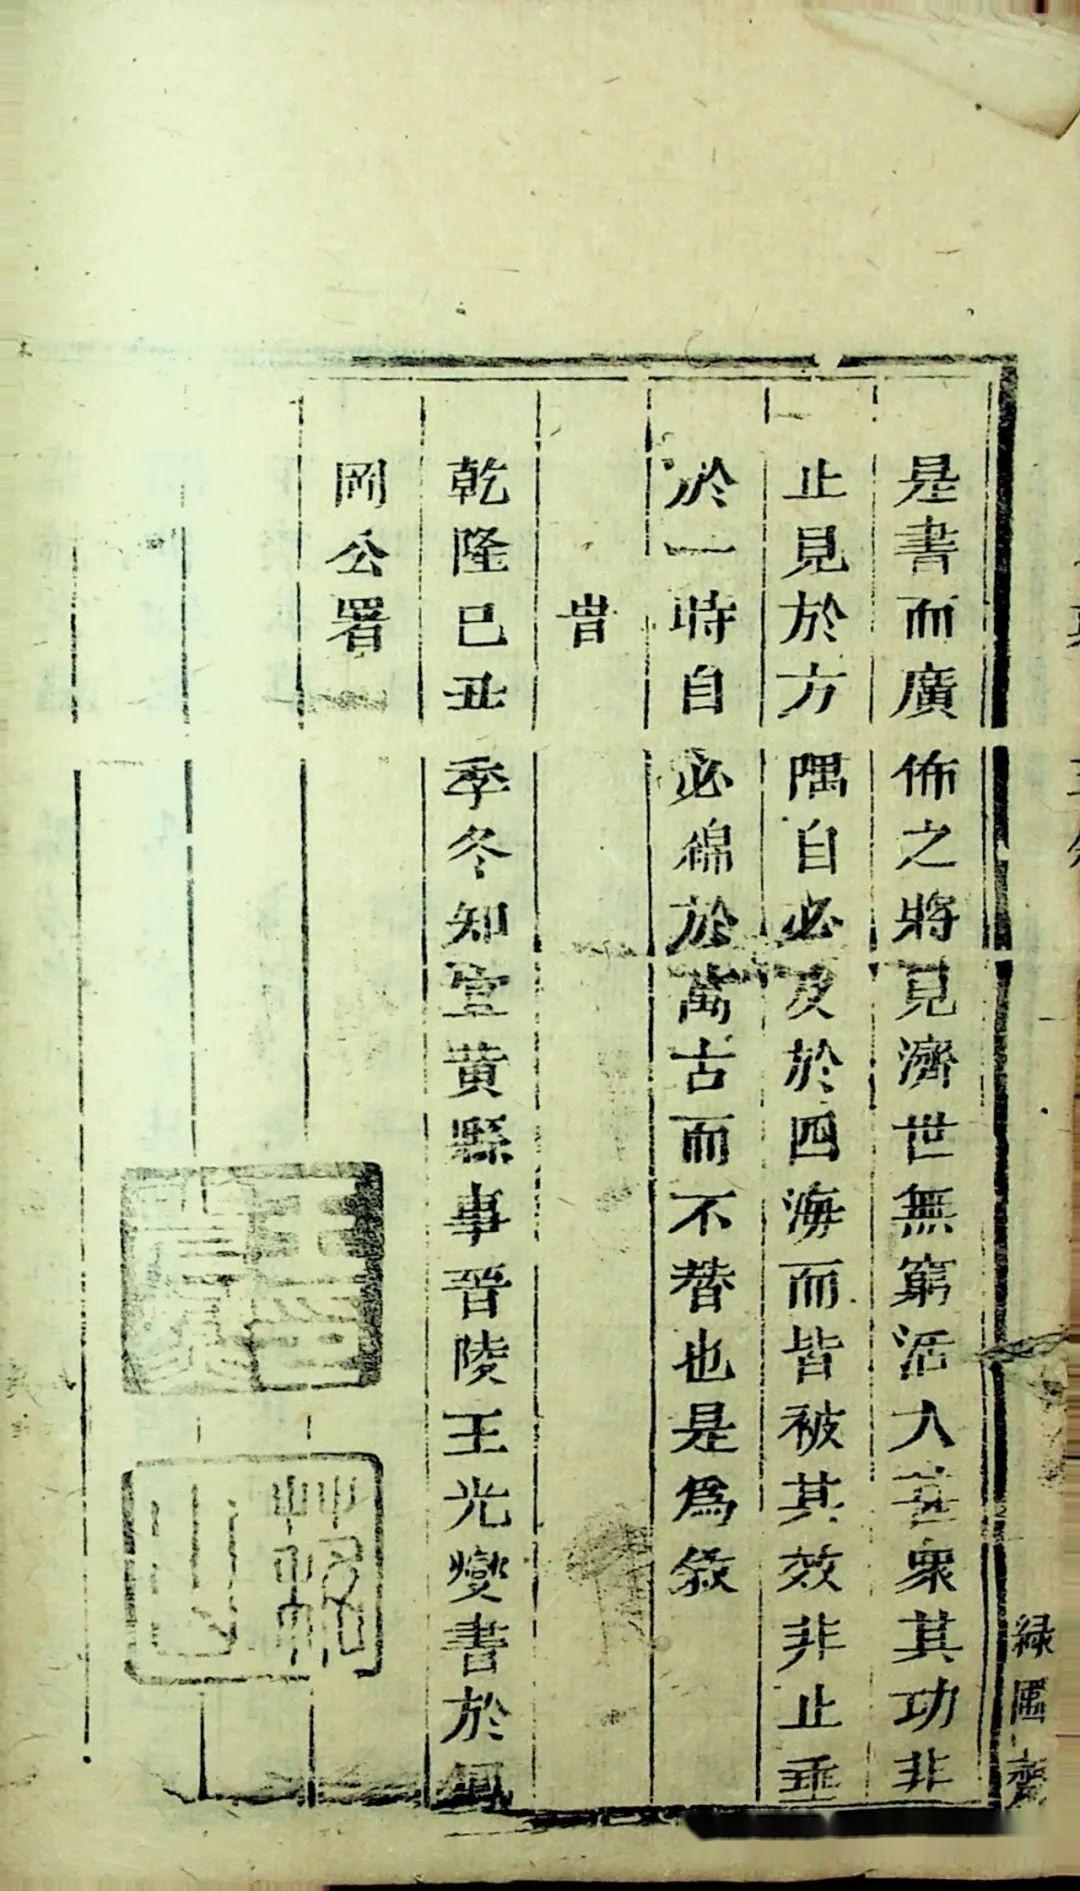 是書而廣佈之將見濟世無窮活人甚衆其功非
止見於方隅自必及於四海而皆被其效非止垂
於一時自必綿於萬古而不替也是為敘
旹
乾隆巳丑季冬知宜黄縣事晉陵王光燮書於鳳
岡公署
緑圃齋